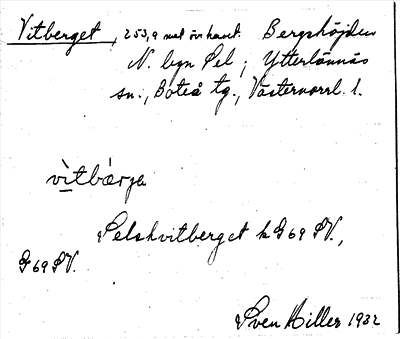 Vitberget, 253,9 met öv havet. Bergshöjden
N. byn Sel; Ytterlännäs
sn., Boteå tg., Västernorrl. l.
vìtbærja
Selshvitberget k G 69 SV.,
G 69 SV.
Sven Hiller 1932